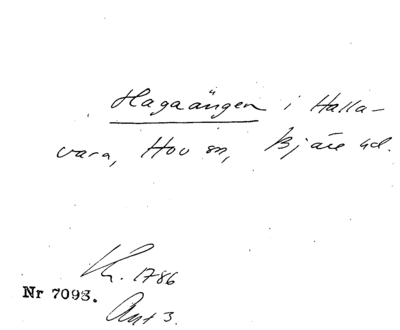 Hagaängen i Halla-
vara, Hov sn, Bjäre hd.
Lh. 1786
Nr 7093.
Ant 3.